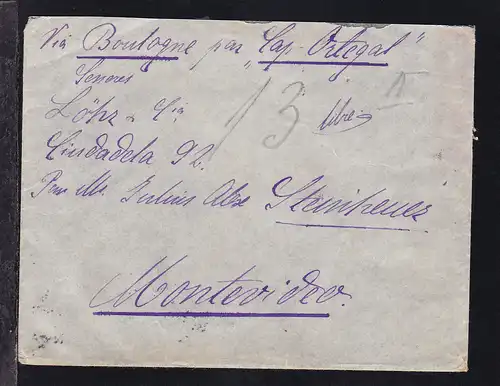 Via Boulogne par "Cap Ortegal"
Señores
Löhr & Cia
13
Ciudadela 92.
Pour Mr. Julius Alex Steinheuer
Montevideo.